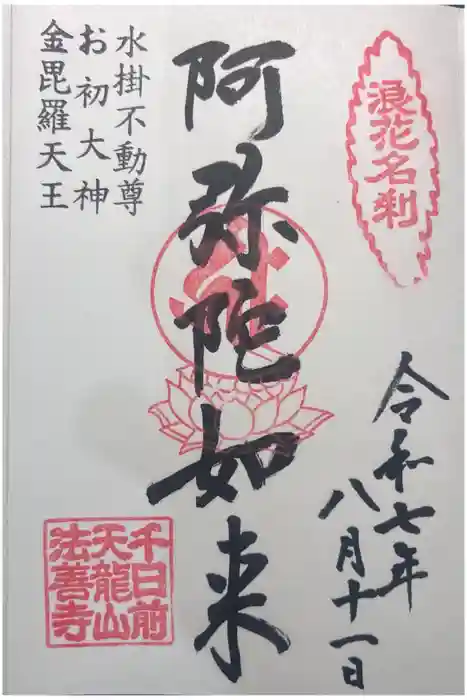 浪花名刹
令和七年
八月十一日
阿弥陀如来
水掛不動尊
お初大神
金毘羅天王
千日前
天龍山
法善寺